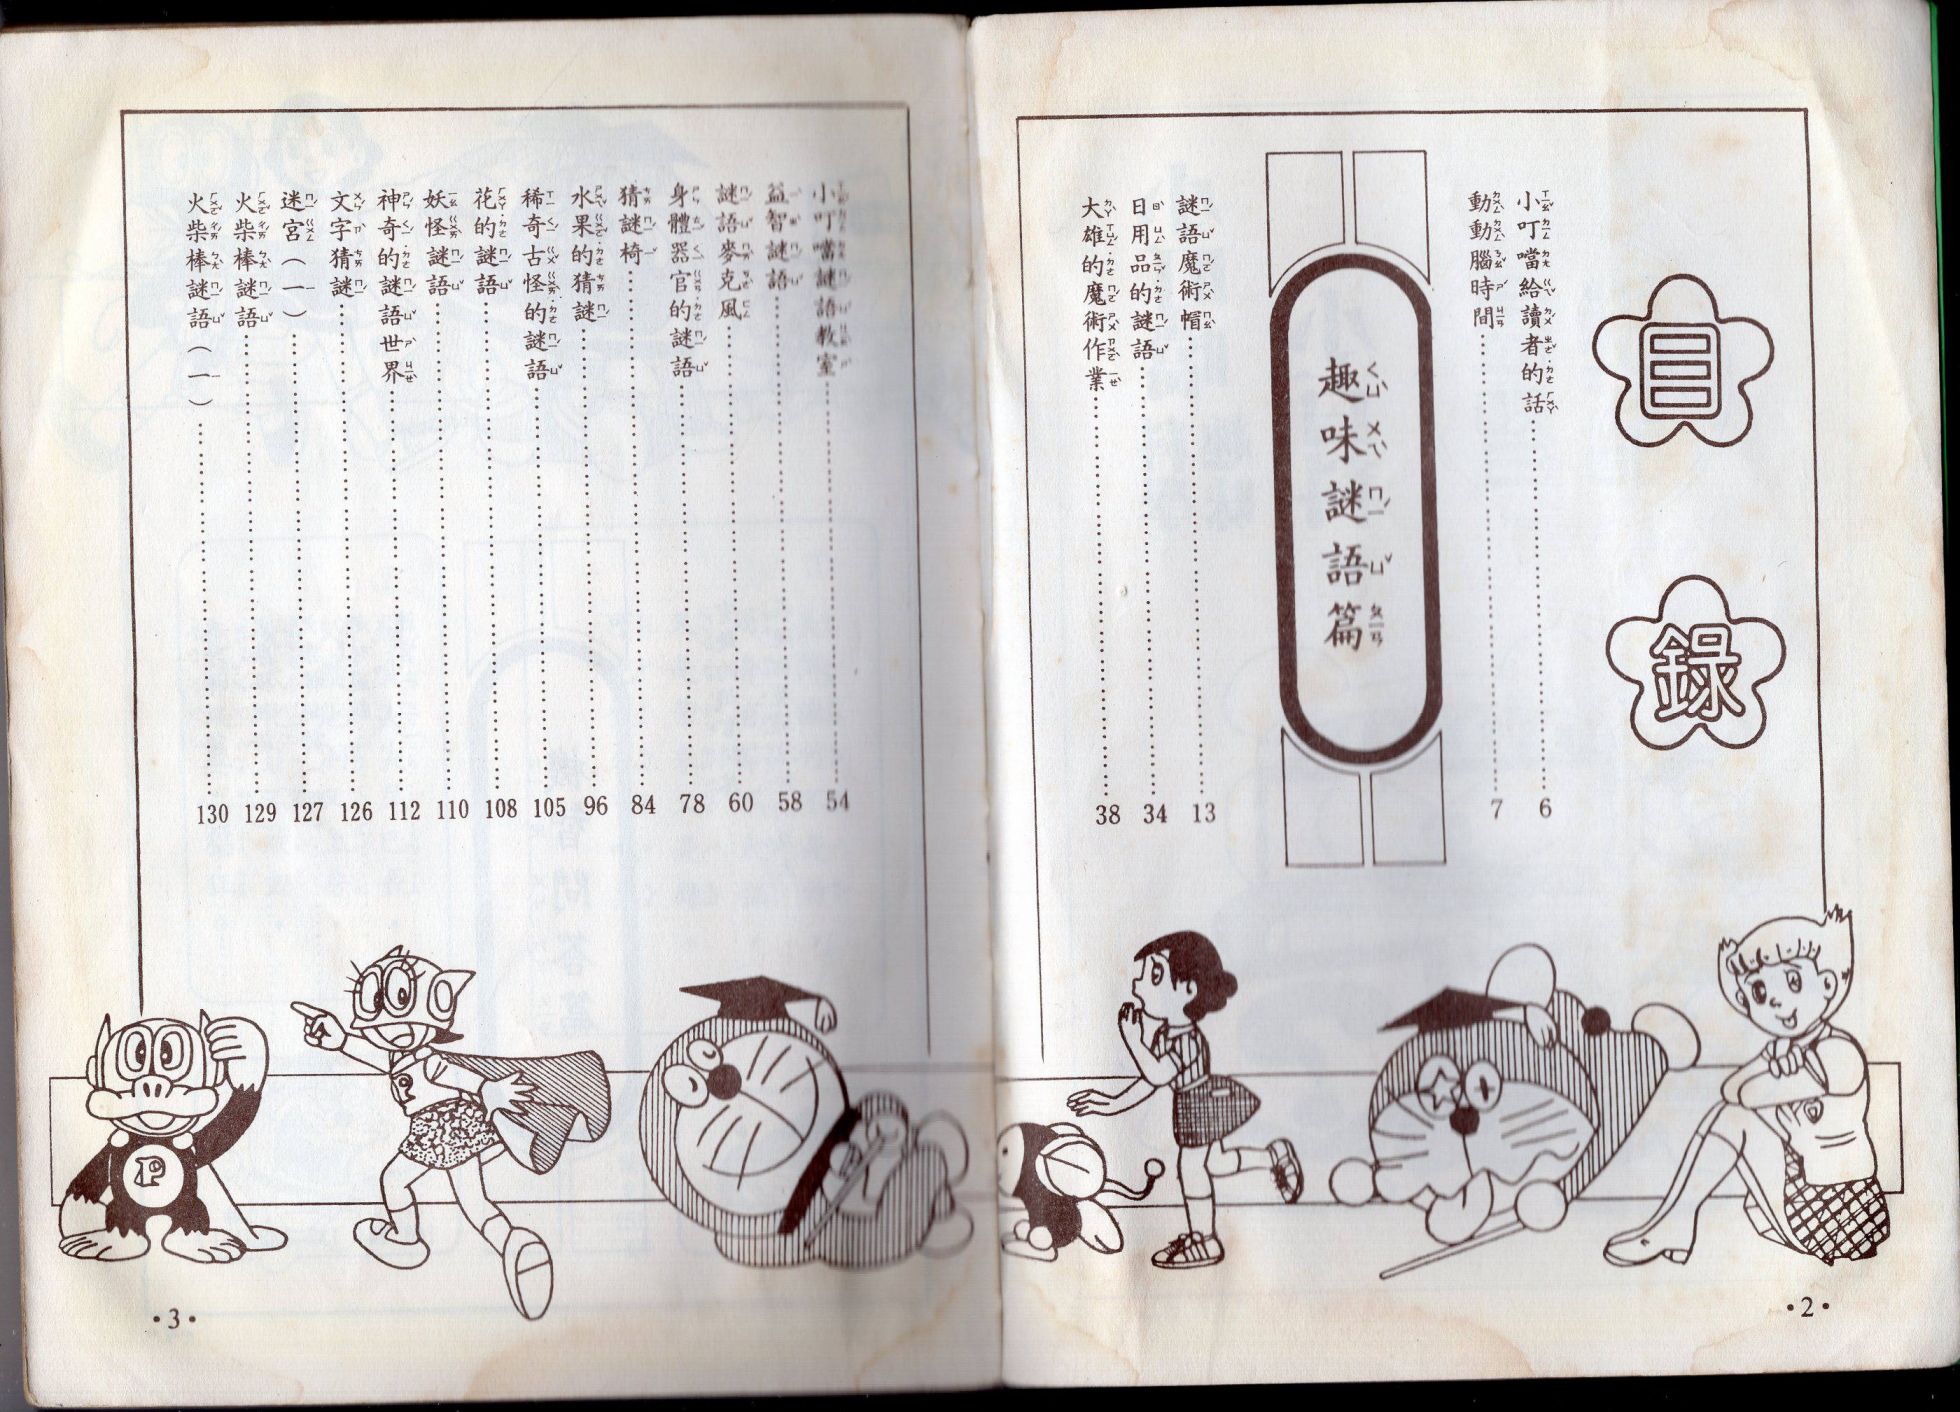 目錄
小叮噹給讀者的話……6
動動腦時間……7
趣味謎語篇
謎語魔術帽……13
日用品的謎語……34
大雄的魔術作業……38
·2·
小叮噹謎語教室……54
益智謎語……58
謎語麥克風……60
身體器官的謎語……78
猜謎椅……84
水果的猜謎……96
稀奇古怪的謎語……105
花的謎語……108
妖怪謎語……110
神奇的謎語世界……112
文字猜謎……126
迷宮（一）……127
火柴棒謎語……129
火柴棒謎語（一）……130
P
P
·3·